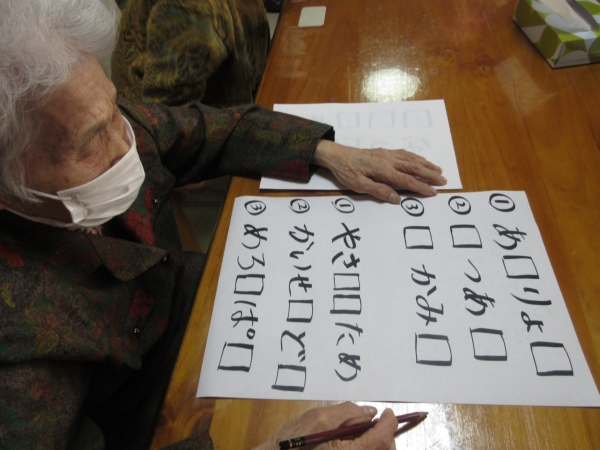 ① あ□りょ□
② □つあ□
③ □かみ□
① やさ□□ため
② かいせ□ど□
③ めろ□ぱ□